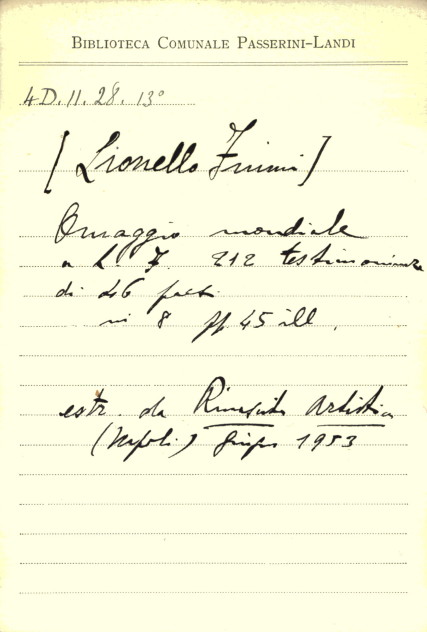 BIBLIOTECA COMUNALE PASSERINI-LANDI
4D.II.28.13°
[Lionello Fiumi]
Omaggio mondiale
a L. F. 212 testimonianze
di 46 paesi
in 8 pp 45 ill.
estr. da Rinascita Artistica
(Napoli) giugno 1953